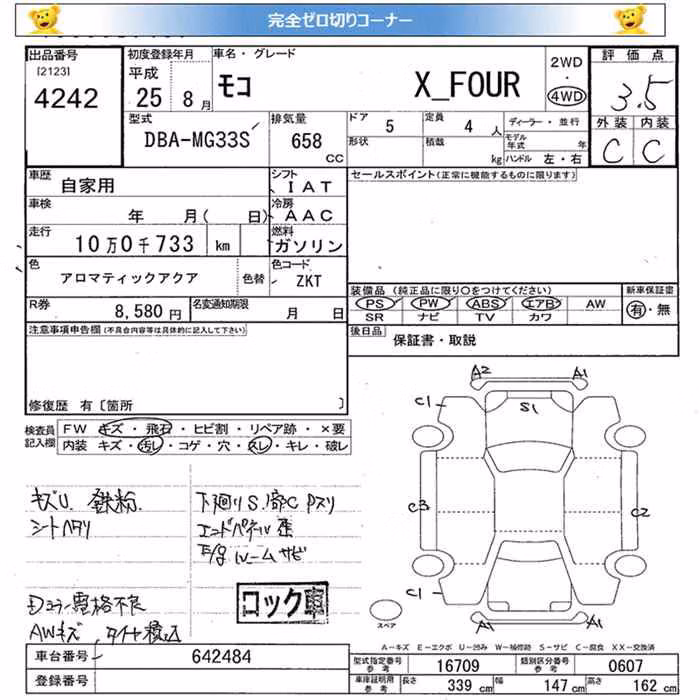 完全ゼロ切りコーナー
出品番号
[2123]
4242
初度登録年月
平成
25 8 月
車名・グレード
モコ X_FOUR
2WD
・
4WD
評価点
3.5
型式
DBA-MG33S
排気量
658
CC
ドア
5
定員
4 人
形状
積載
kg
ディーラー・並行
モデル年式 年
ハンドル 左・右
外装 内装
C C
車歴
自家用
シフト
IAT
車検
年 月( 日)
冷房
AAC
走行
10万0千733 km
燃料
ガソリン
色
アロマティックアクア
色替
色コード
ZKT
R券
8,580 円
名変通知期限
月 日
セールスポイント(正常に機能するものに限ります)
装備品 (純正品に限り○をつけてください)
PS PW ABS エアB AW
SR ナビ TV カワ
新車保証書
有・無
後日品
保証書・取説
注意事項申告欄(不具合内容等は具体的に記入して下さい)
修復歴 有〔箇所 〕
検査員
記入欄
FW キズ・飛石・ヒビ割・リペア跡・×要
内装 キズ・汚レ・コゲ・穴・スレ・キレ・破レ
キズU. 鉄粉.
シートヘタリ
下廻りS.部C Pスリ
エンドパネル歪
ルームサビ
AWキズ
コック車
A2 A1
C1
S1
C3
C2
C1
A1 A1
スペア
A-キズ E-エクボ U-凹み W-補修跡 S-サビ C-腐食 XX-交換済
車台番号 642484
登録番号
型式指定番号
参考
16709
類別区分番号
参考
0607
車庫証明用
参考
長さ 339 cm 幅 147 cm 高さ 162 cm